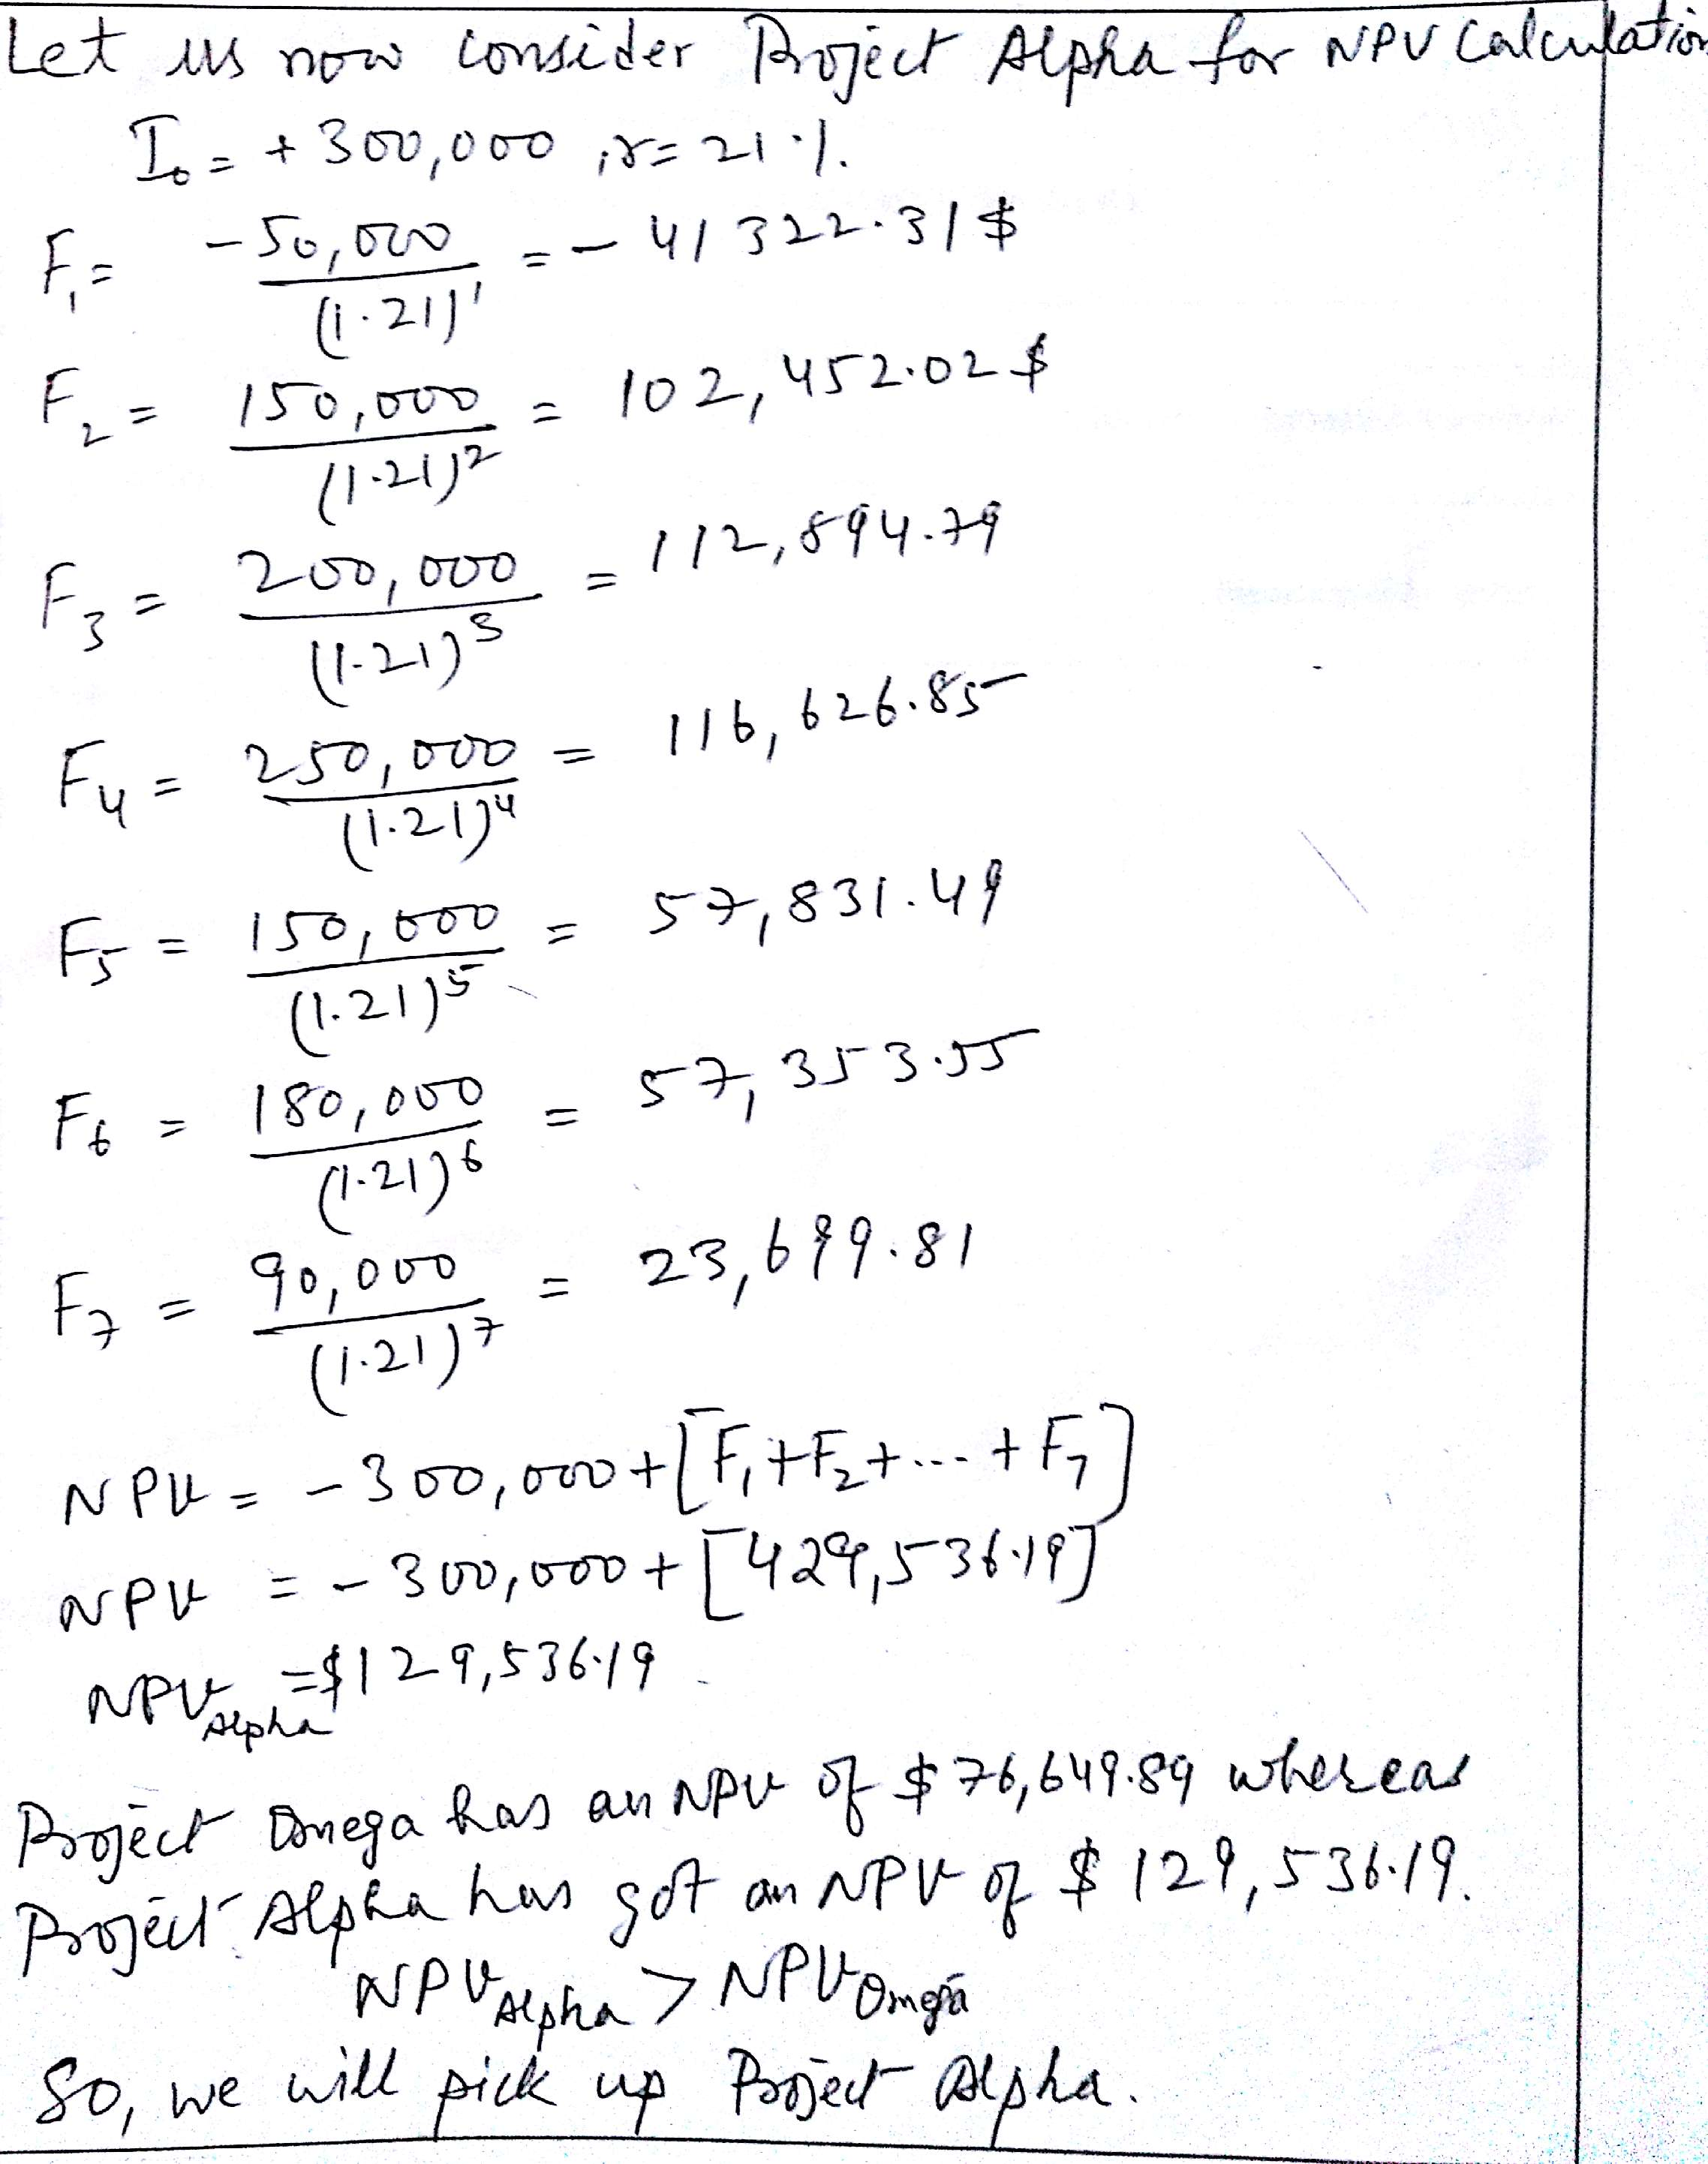 Let us now consider Project Alpha for NPV Calculation
I₀ = + 300,000 ; r = 21 %.
F₁ = -50,000 / (1.21)¹ = - 41322.31 $
F₂ = 150,000 / (1.21)² = 102,452.02 $
F₃ = 200,000 / (1.21)³ = 112,894.79
F₄ = 250,000 / (1.21)⁴ = 116,626.85
F₅ = 150,000 / (1.21)⁵ = 57,831.49
F₆ = 180,000 / (1.21)⁶ = 57,353.55
F₇ = 90,000 / (1.21)⁷ = 23,699.81
NPV = - 300,000 + [F₁ + F₂ + ... + F₇]
NPV = - 300,000 + [429,536.19]
NPV Alpha = $129,536.19
Project Omega has an NPV of $ 76,649.89 whereas
Project Alpha has got an NPV of $ 129,536.19.
NPV Alpha > NPV Omega
So, we will pick up Project Alpha.